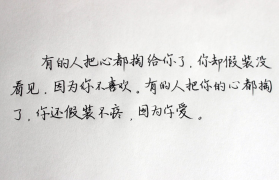 有的人把心都掏给你了，你却假装没
看见，因为你不喜欢。有的人把你的心都掏
了，你还假装不疼，因为你爱。